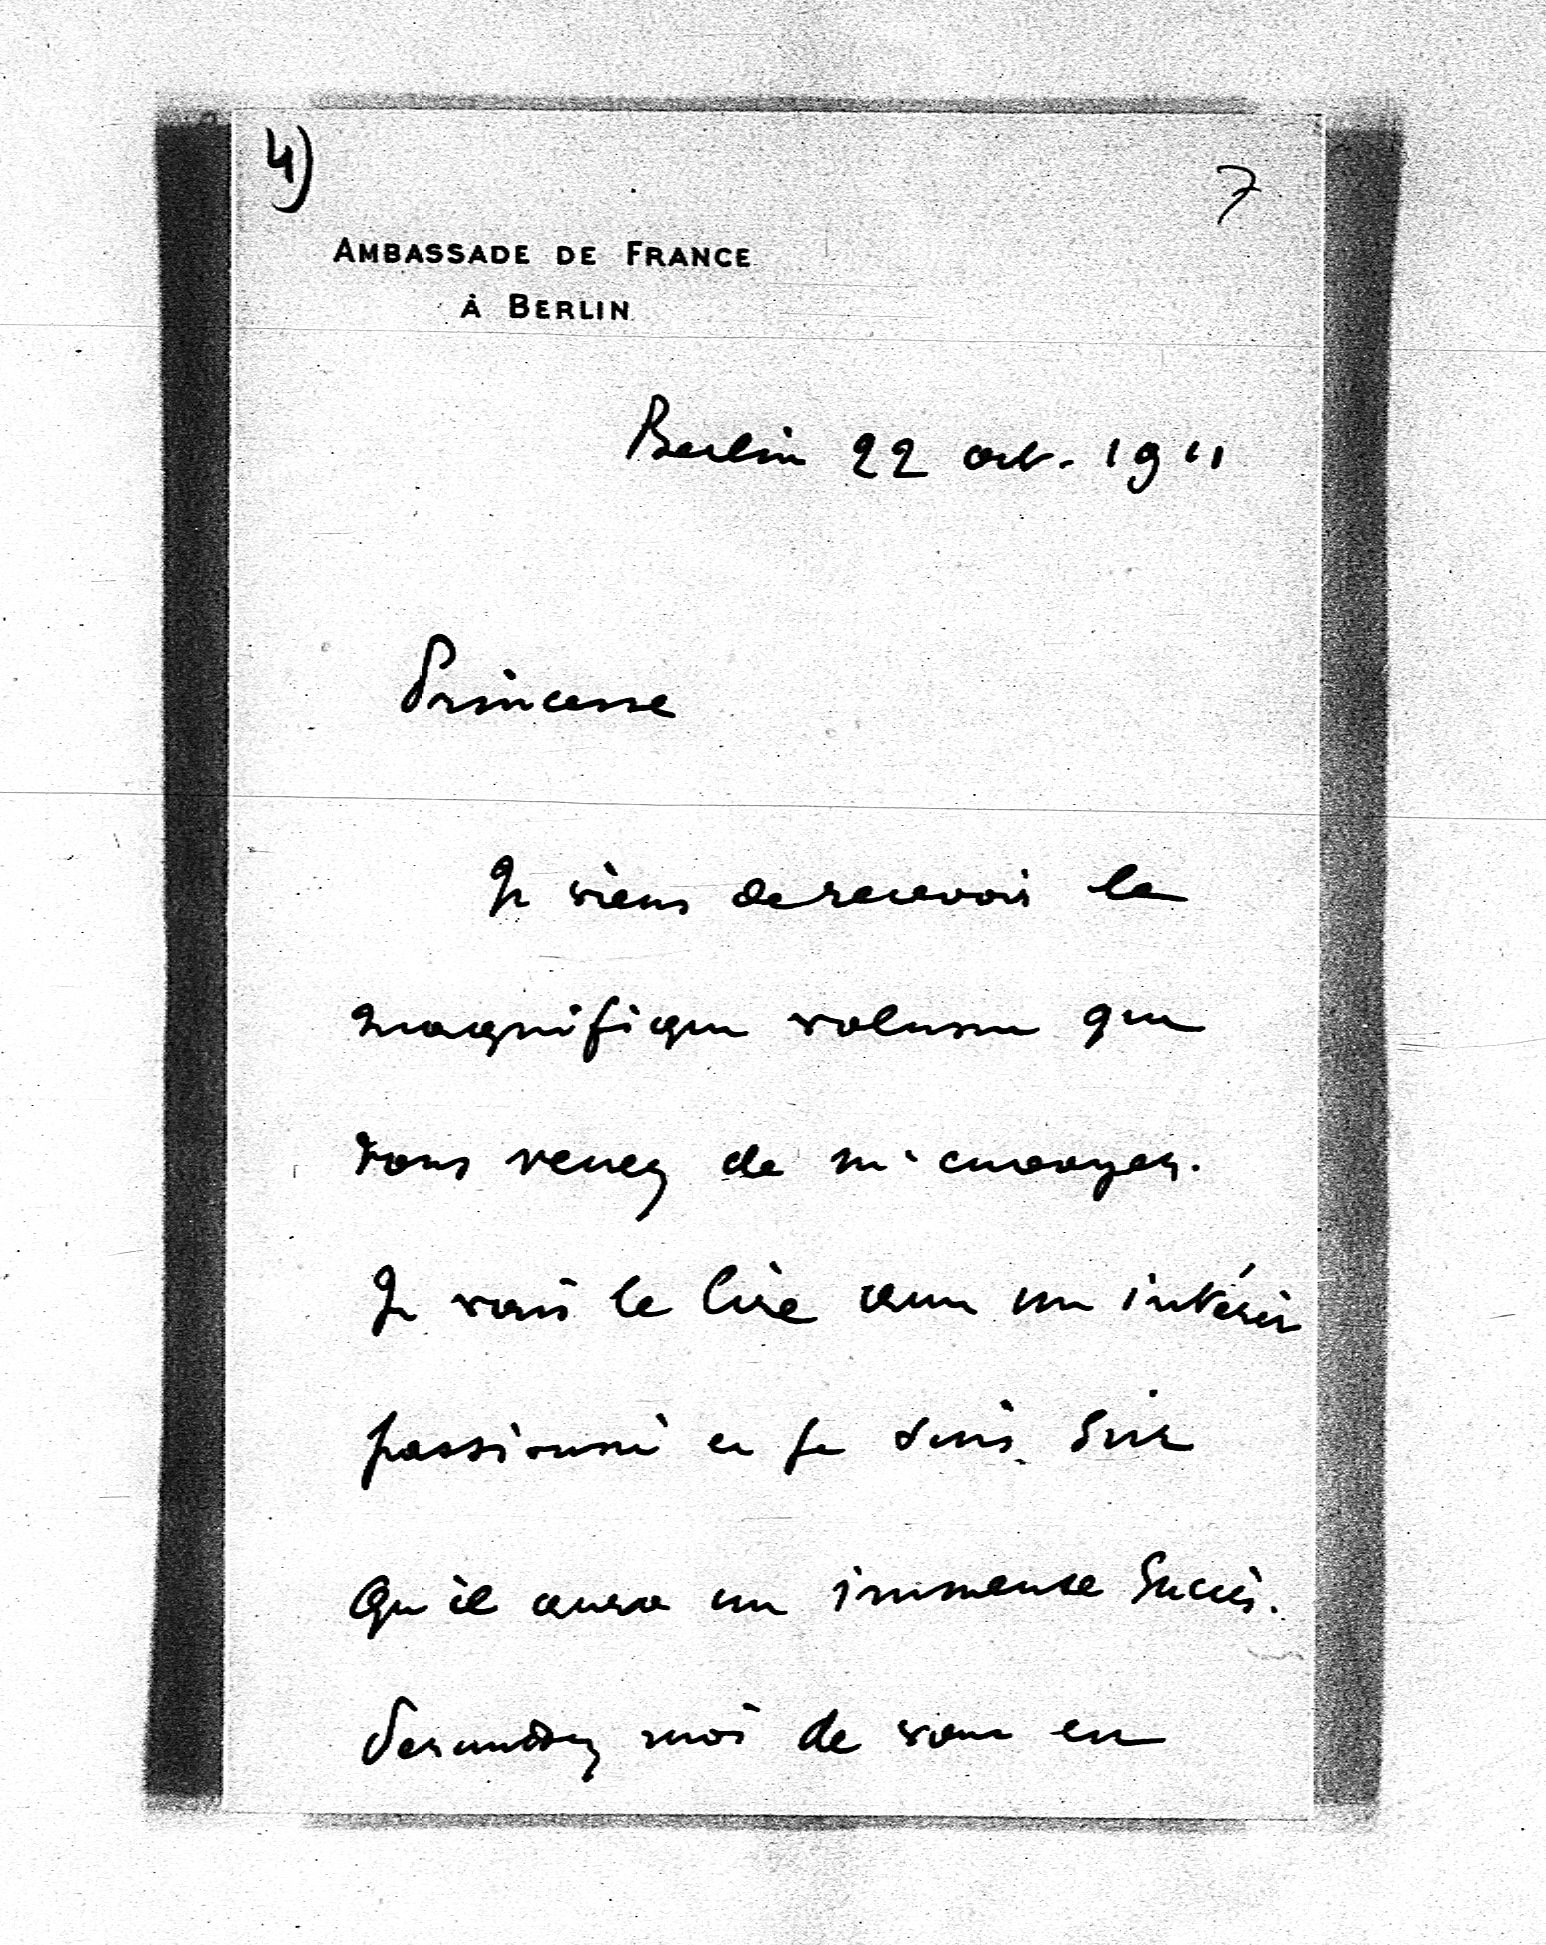 4)
7
AMBASSADE DE FRANCE
À BERLIN
Berlin 22 oct. 1911
Princesse
Je viens de recevoir le
magnifique volume que
vous venez de m'envoyer.
Je vais le lire avec un intérêt
passionné et je suis sûr
qu'il aura un immense succès.
Permettez moi de vous en